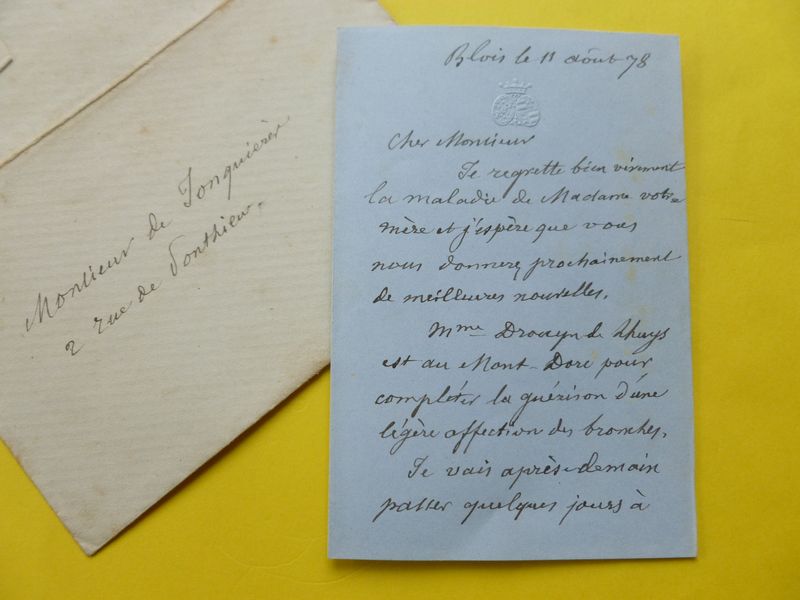 Monsieur de Jonquières
2 rue de Ponthieu.
Blois le 11 août 78
Cher Monsieur
Je regrette bien vivement
la maladie de Madame votre
mère et j'espère que vous
nous donnerez prochainement
de meilleures nouvelles.
Mme Drouyn de Lhuys
est au Mont-Dore pour
compléter la guérison d'une
légère affection des bronches.
Je vais après-demain
passer quelques jours à